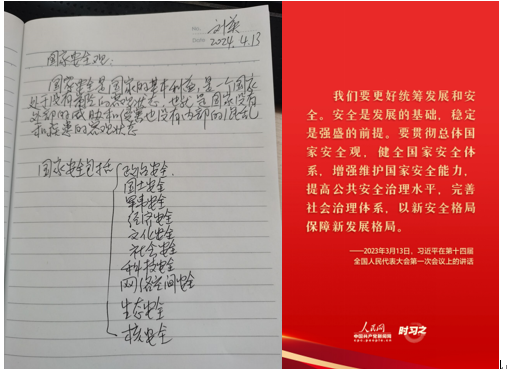 No.
刘英
Date 2024.4.13
国家安全观:
国家安全是国家的基本利益,是一个国家
处于没有危险的客观状态,也就是国家没有
外部的威胁和侵害也没有内部的混乱
和疾患的客观状态
国家安全包括
政治安全
国土安全
军事安全
经济安全
文化安全
社会安全
科技安全
网络空间安全
生态安全
核安全
我们要更好统筹发展和安
全。安全是发展的基础,稳定
是强盛的前提。要贯彻总体国
家安全观,健全国家安全体
系,增强维护国家安全能力,
提高公共安全治理水平,完善
社会治理体系,以新安全格局
保障新发展格局。
——2023年3月13日,习近平在第十四届
全国人民代表大会第一次会议上的讲话
人民网
中国共产党新闻网
cpc.people.cn
时习之